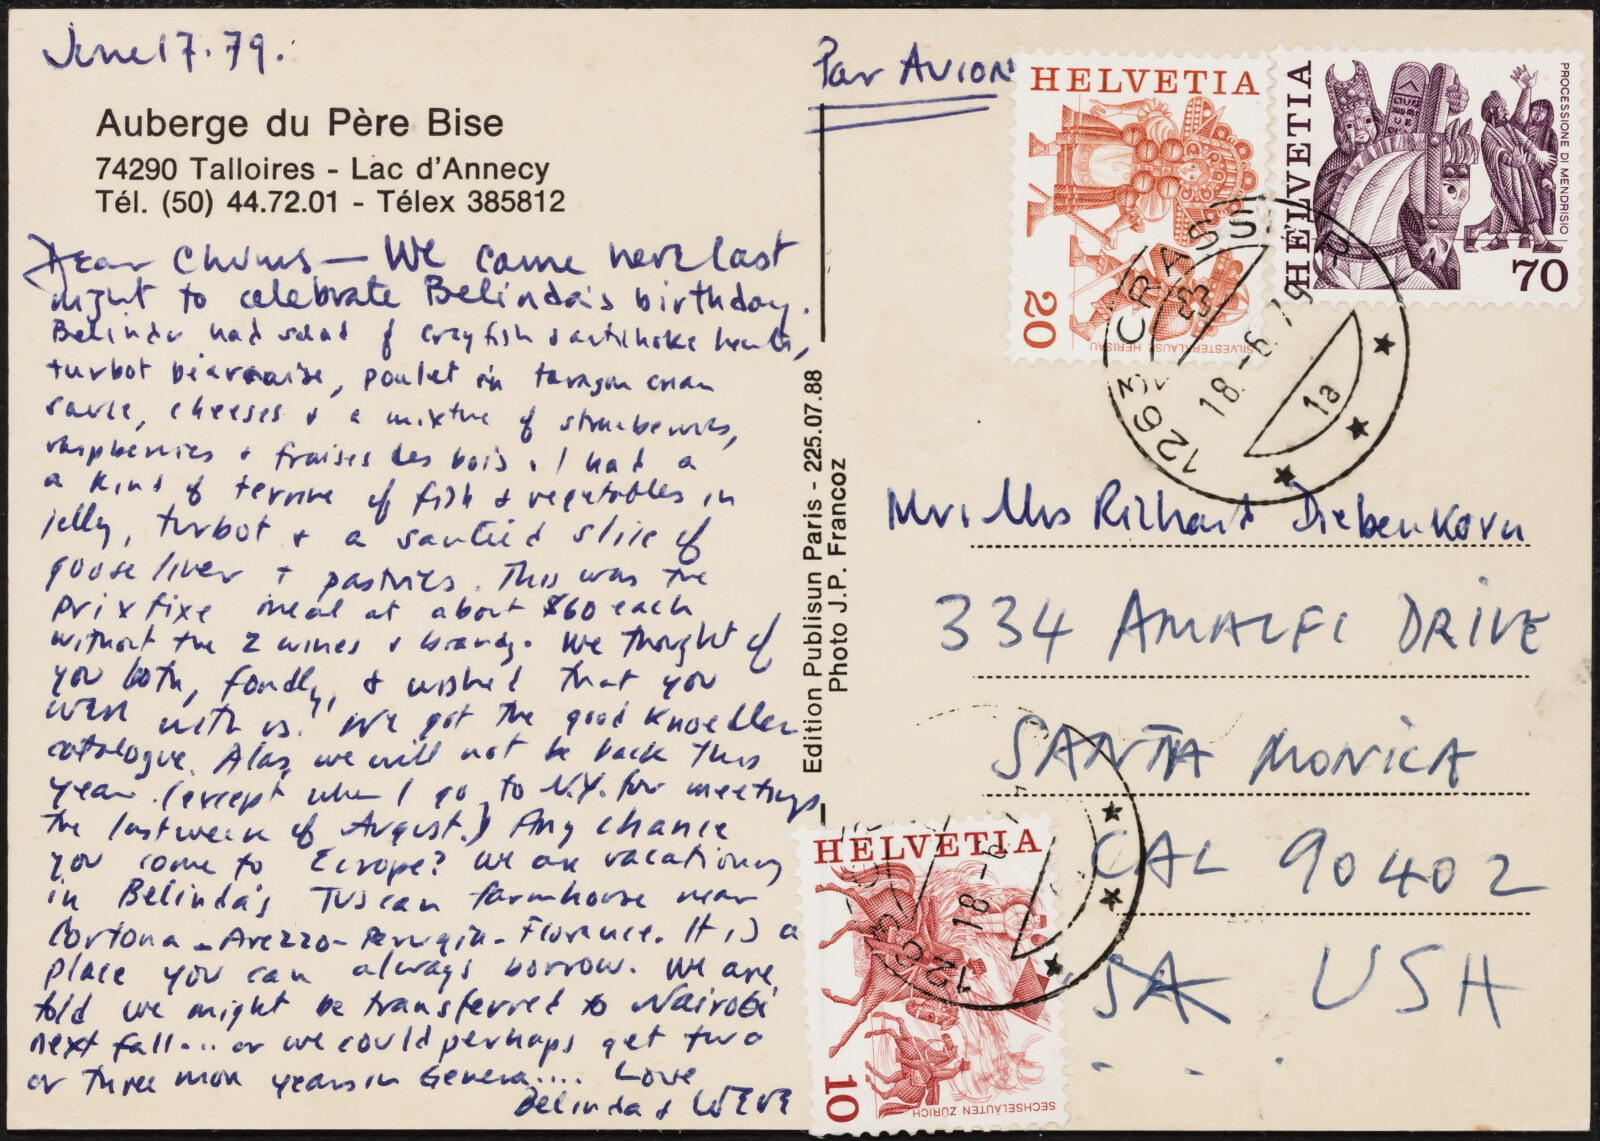 June 17. 79.
Auberge du Père Bise
74290 Talloires - Lac d'Annecy
Tél. (50) 44.72.01 - Télex 385812
Dear Chums — We came here last
night to celebrate Belinda's birthday.
Belinda had salad of crayfish & artichoke hearts,
turbot béarnaise, poulet in taragon cream
sauce, cheeses & a mixture of strawberries,
raspberries & fraises des bois. I had a
a kind of terrine of fish & vegetables in
jelly, turbot & a sautéed slice of
goose liver & pastries. This was the
prix fixe meal at about $60 each
without the 2 wines & brandy. We thought of
you both, fondly, & wished that you
were with us. We got the good Knoedler
catalogue. Alas, we will not be back this
year. (except when I go to N.Y. for meetings
the last week of August.) Any chance
you come to Europe? We are vacationing
in Belinda's Tuscan farmhouse near
Cortona - Arezzo - Perugia - Florence. It is a
place you can always borrow. We are
told we might be transferred to Nairobi
next fall... or we could perhaps get two
or three more years in Geneva.... Love
Belinda &
Edition Publisun Paris - 225.07.88
Photo J.P. Francoz
Par Avion
HELVETIA
20
SILVESTERKLÄUSE HERISAU
HELVETIA
HELVETIA
70
PROCESSIONE DI MENDRISIO
1263 CRASSIER
18.-6.79
1a
Mr. Mrs Richard Diebenkorn
334 AMALFI DRIVE
SANTA MONICA
CAL 90402
USA
HELVETIA
10
SECHSELÄUTEN ZÜRICH
1263
18.-6